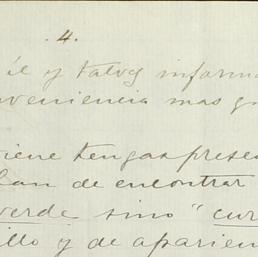 .4.
él y talvez informa
veniencia mas gr
iene tengas prese
lan de encontrar
verde sino "cur
illo y de aparien